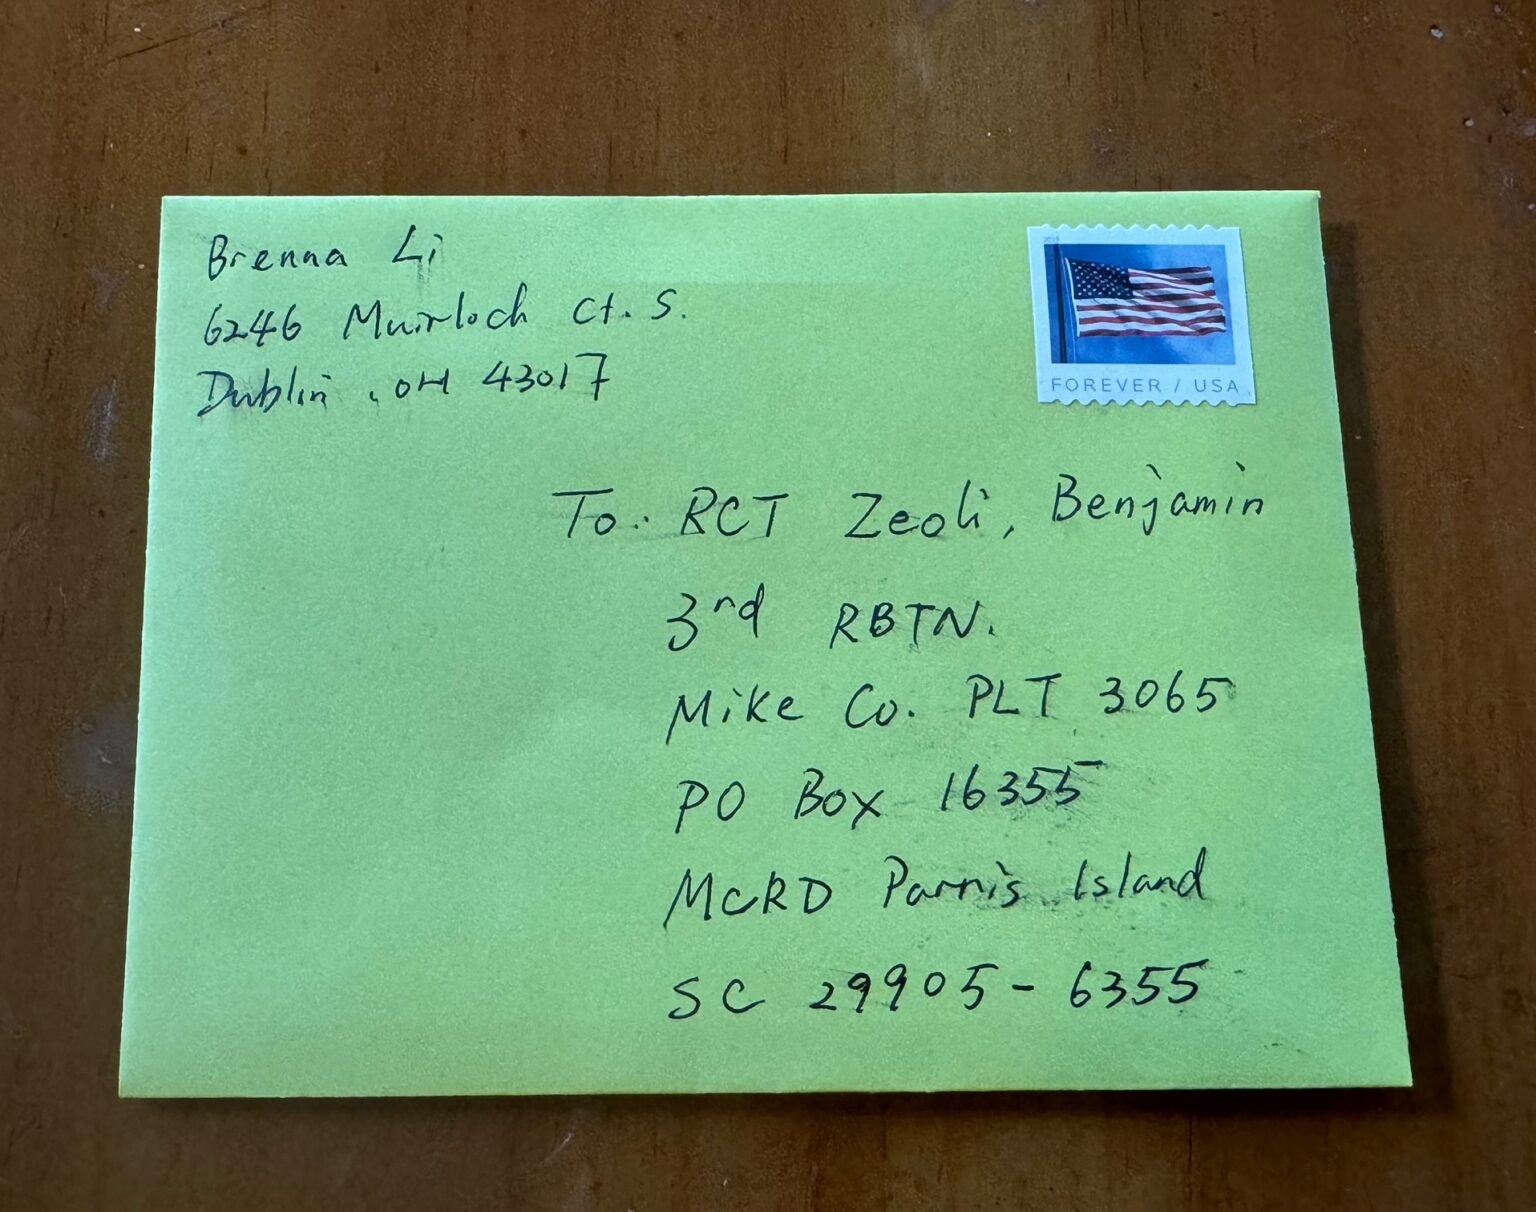 Brenna Li
6246 Muirloch Ct. S.
Dublin, OH 43017
FOREVER / USA
To: RCT Zeoli, Benjamin
3rd RBTN.
Mike Co. PLT 3065
PO Box 16355
MCRD Parris Island
SC 29905-6355